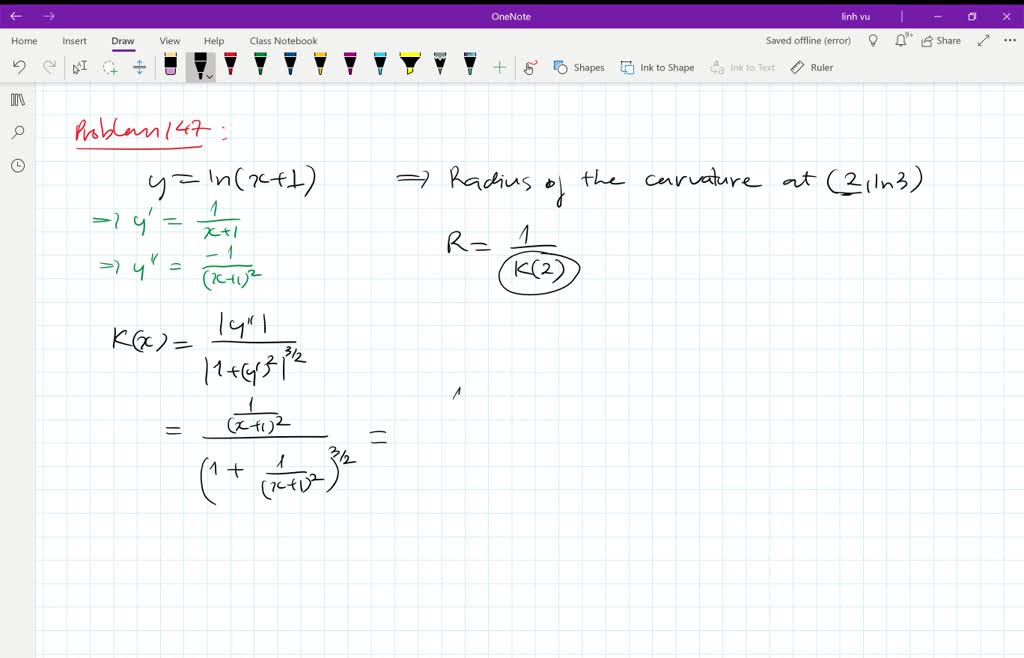 OneNote
linh vu
Home Insert Draw View Help Class Notebook
Saved offline (error)
9+
Share
Shapes
Ink to Shape
Ink to Text
Ruler
Problem 147 :
y = ln(x+1) ⇒ Radius of the carvature at (2, ln3)
⇒ y' = 1/(x+1)
⇒ y'' = -1/(x+1)²
R = 1/K(2)
K(x) = |y''| / |1+(y')²|^3/2
= (1/(x+1)²) / (1 + 1/(x+1)²)^3/2 =